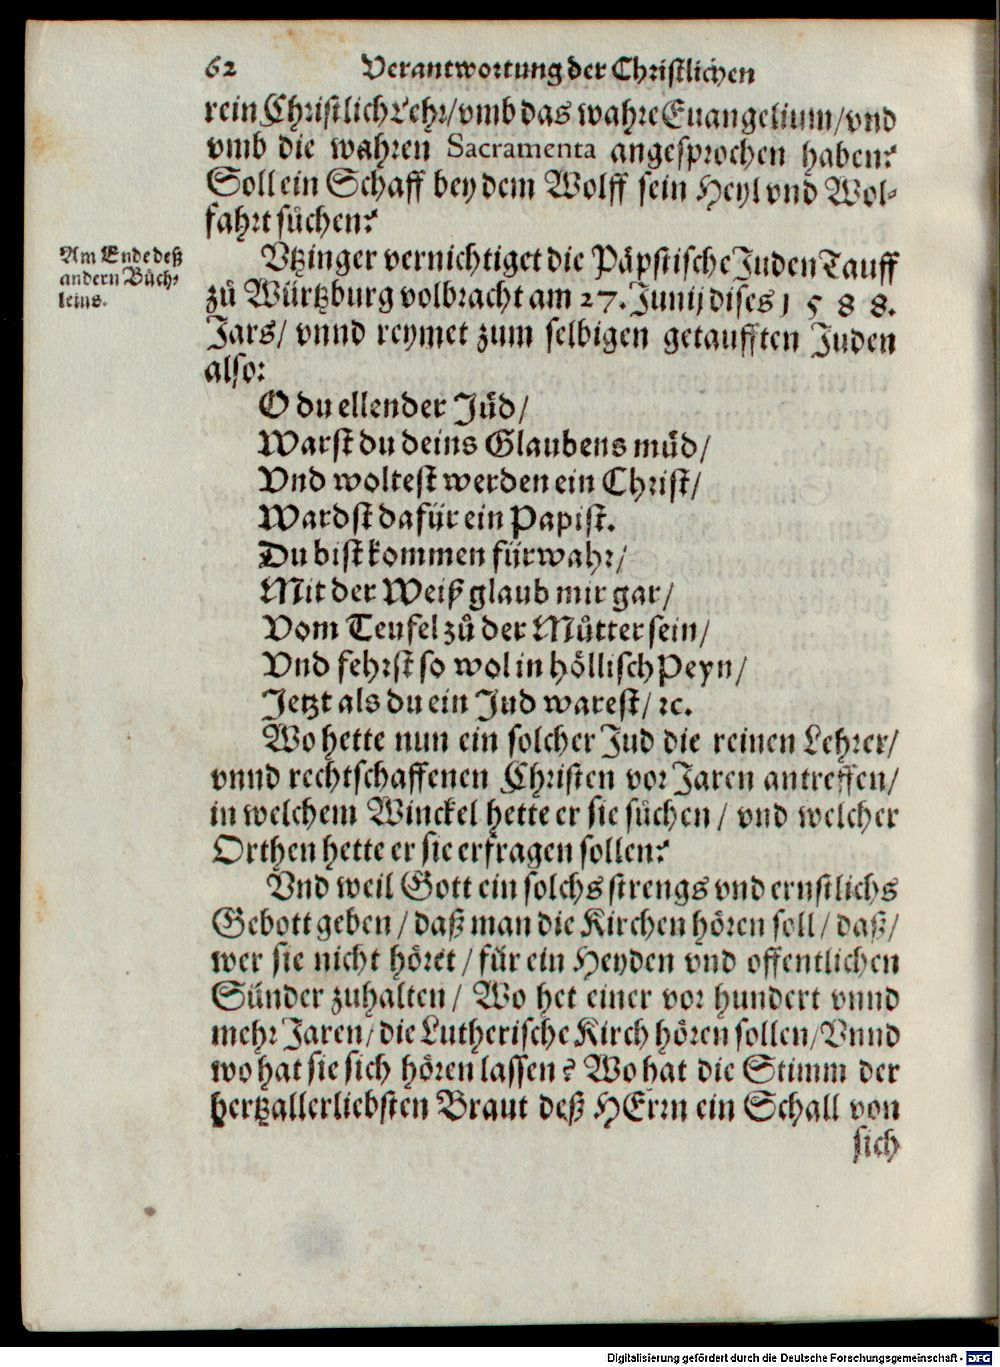 62 Verantwortung der Christlichen
rein Christlich Lehr/ vmb das wahre Euangelium/ vnd
vmb die wahren Sacramenta angesprochen haben?
Soll ein Schaff bey dem Wolff sein Heyl vnd Wol-
fahrt sůchen?
Am Ende deß
andern Bůch-
leins.
Vtzinger vernichtiget die Päpstische Juden Tauff
zů Würtzburg volbracht am 27. Junij dises 1588.
Jars/ vnnd reymet zum selbigen getaufften Juden
also:
O du ellender Jüd/
Warst du deins Glaubens müd/
Vnd woltest werden ein Christ/
Wardst dafür ein Papist.
Du bist kommen fürwahr/
Mit der Weiß glaub mir gar/
Vom Teufel zů der Můtter sein/
Vnd fehrst so wol in höllisch Peyn/
Jetzt als du ein Jud warest/ ꝛc.
Wo hette nun ein solcher Jud die reinen Lehrer/
vnnd rechtschaffenen Christen vor Jaren antreffen/
in welchem Winckel hette er sie sůchen/ vnd welcher
Orthen hette er sie erfragen sollen?
Vnd weil Gott ein solchs strengs vnd ernstlichs
Gebott geben/ daß man die Kirchen hören soll/ daß/
wer sie nicht höret/ für ein Heyden vnd offentlichen
Sünder zuhalten/ Wo het einer vor hundert vnnd
mehr Jaren/ die Lutherische Kirch hören sollen/ Vnnd
wo hat sie sich hören lassen? Wo hat die Stimm der
hertzallerliebsten Braut deß HErrn ein Schall von
sich
Digitalisierung gefördert durch die Deutsche Forschungsgemeinschaft - DFG